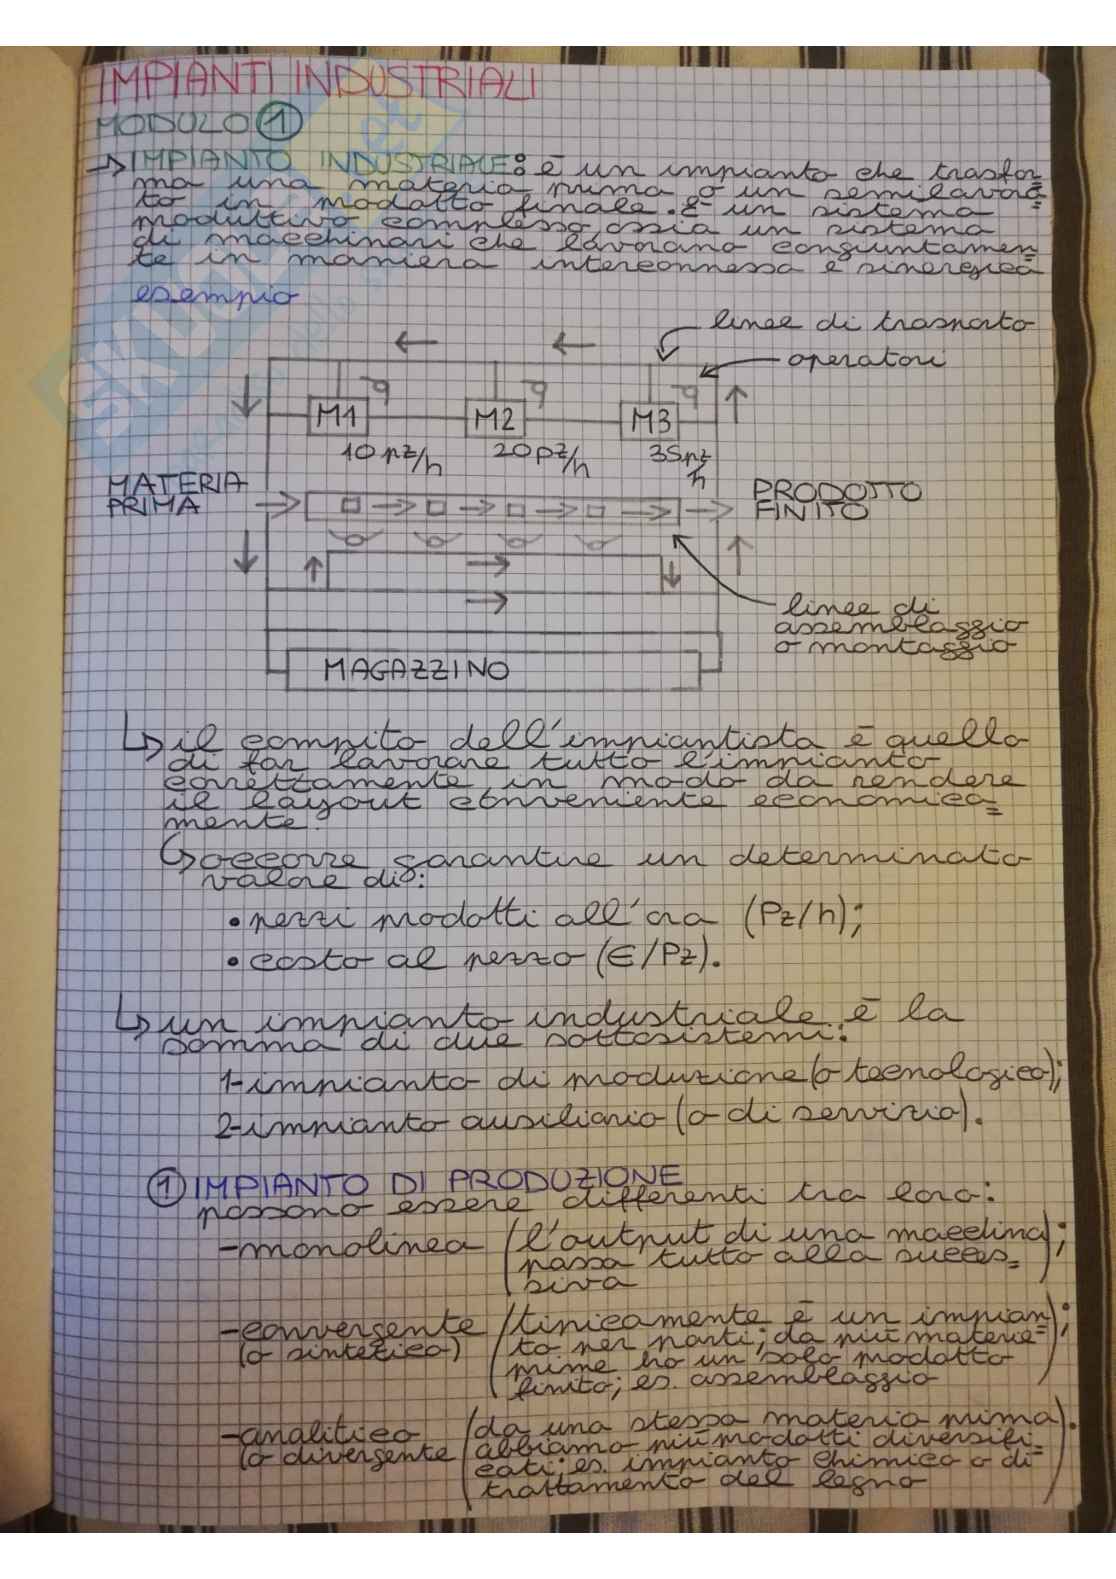 IMPIANTI INDUSTRIALI
MODULO 1
→ IMPIANTO INDUSTRIALE: è un impianto che trasfor
ma una materia prima o un semilavora=
to in prodotto finale. È un sistema
produttivo complesso, ossia un sistema
di macchinari che lavorano congiuntamen=
te in maniera interconnessa e sinergica
esempio
linee di trasporto
operatori
M1 M2 M3
10 pz/h 20 pz/h 35 pz/h
MATERIA
PRIMA
PRODOTTO
FINITO
linee di
assemblaggio
o montaggio
MAGAZZINO
↳ il compito dell'impiantista è quello
di far lavorare tutto l'impianto
correttamente in modo da rendere
il layout conveniente economica=
mente.
↳ occorre garantire un determinato
valore di:
• pezzi prodotti all'ora (Pz/h);
• costo al pezzo (€/Pz).
↳ un impianto industriale è la
somma di due sottosistemi:
1-impianto di produzione (o tecnologico);
2-impianto ausiliario (o di servizio).
1 IMPIANTO DI PRODUZIONE
possono essere differenti tra loro:
-monolinea (l'output di una macchina
passa tutto alla succes=
siva);
-convergente (tipicamente è un impian=
(o sintetico) to per parti; da più materie
prime ho un solo prodotto
finito; es. assemblaggio);
-analitico (da una stessa materia prima
(o divergente abbiamo più prodotti diversifi=
cati; es. impianto chimico o di
trattamento del legno).